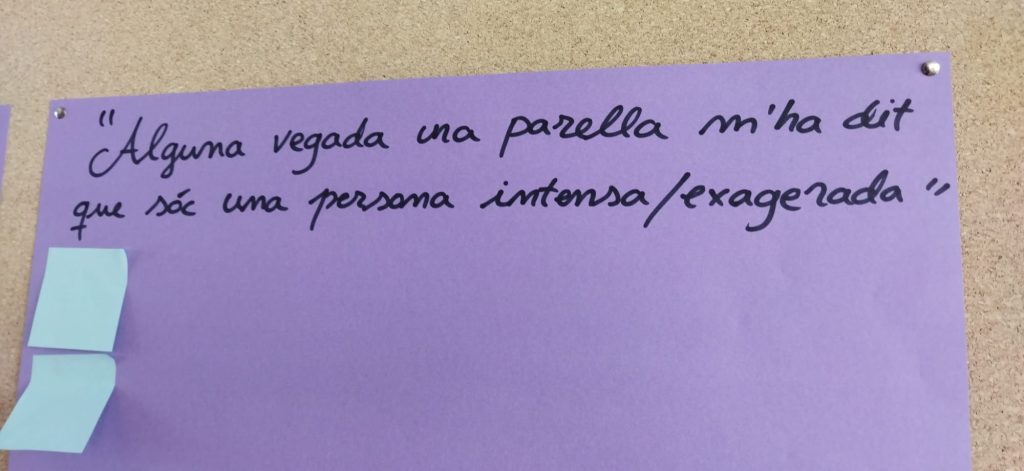 "Alguna vegada una parella m'ha dit
que sóc una persona intensa/exagerada"